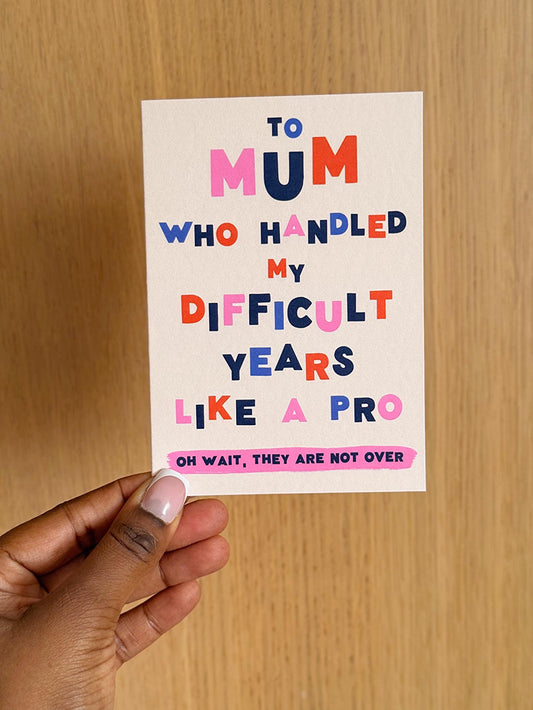 TO
MUM
WHO HANDLED
MY
DIFFICULT
YEARS
LIKE A PRO
OH WAIT, THEY ARE NOT OVER